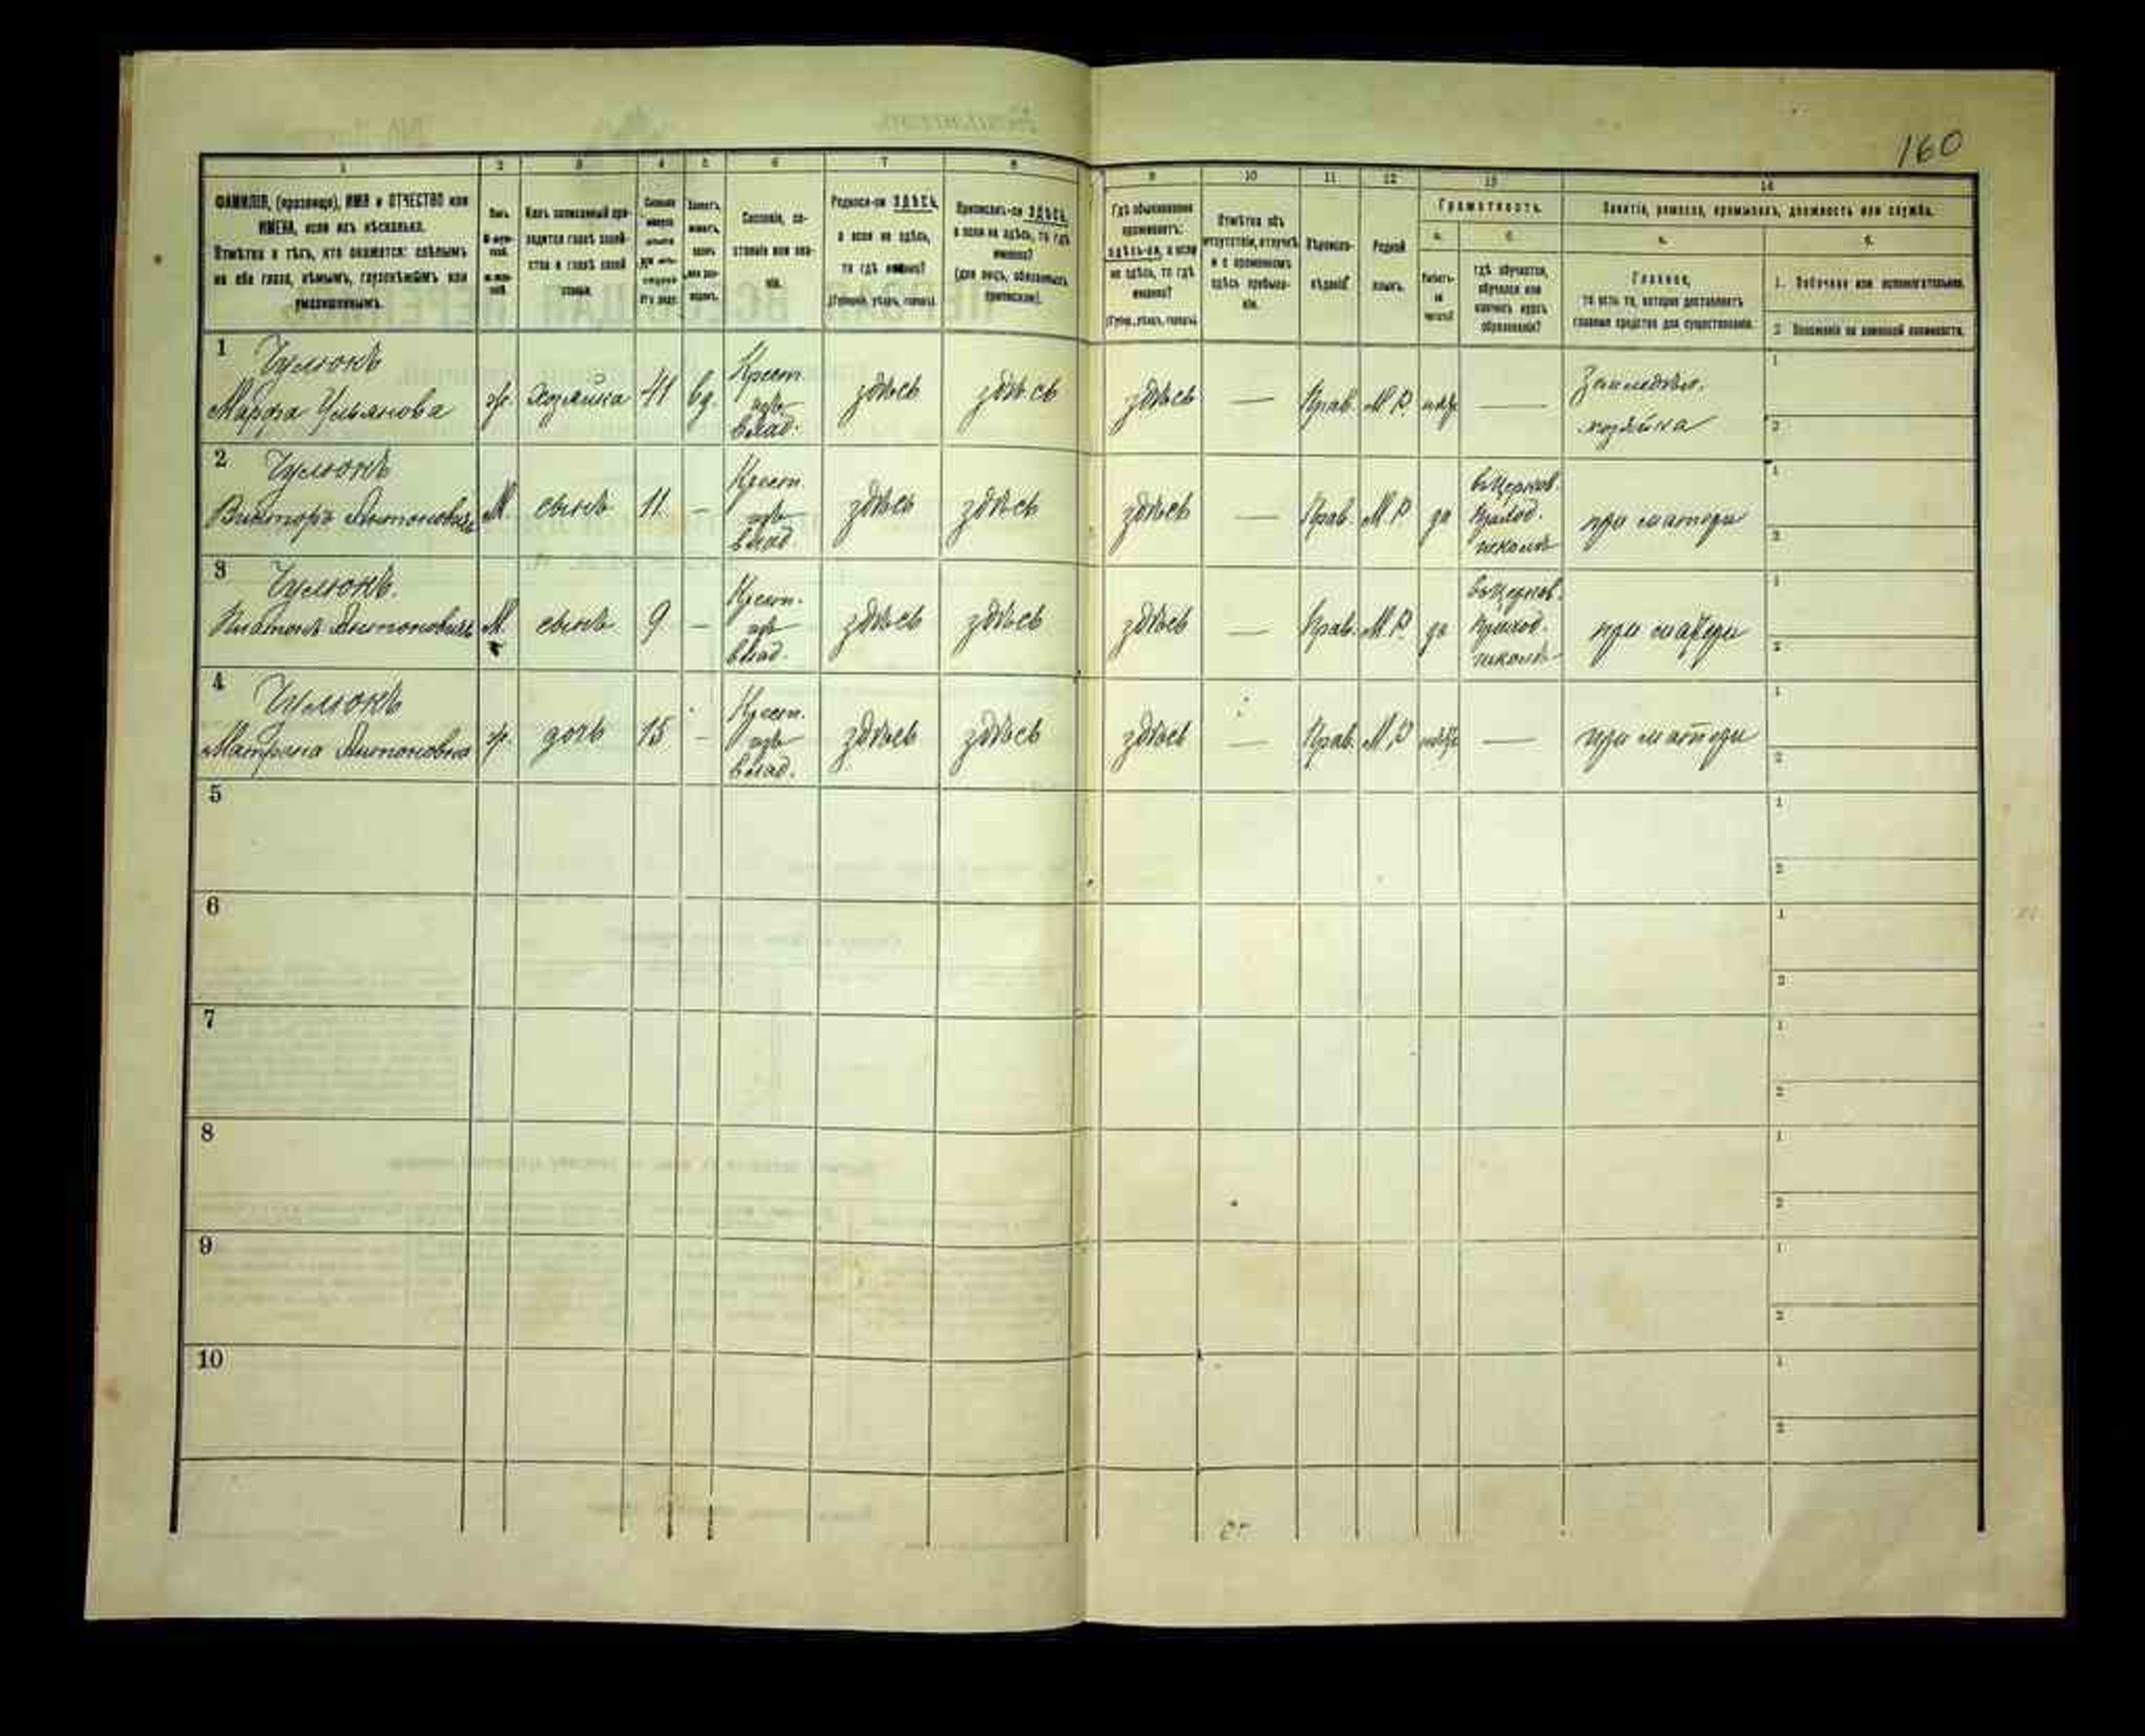 160
1 2 3 4 5 6 7 8 9 10 11 12 13 14
ФАМИЛІЯ, (прозвище), ИМЯ и ОТЧЕСТВО или
ИМЕНА, если ихъ нѣсколько.
Отмѣтка о тѣхъ, кто окажется: слѣпымъ
на оба глаза, нѣмымъ, глухонѣмымъ или
умалишеннымъ.
Полъ.
Какъ записанный при-
ходится главѣ хозяй-
ства и главѣ своей
семьи.
Сословіе, со-
стояніе или зва-
ніе.
Родился-ли ЗДѢСЬ,
а если не здѣсь,
то гдѣ именно?
(Губернія, уѣздъ, городъ).
Приписанъ-ли ЗДѢСЬ,
а если не здѣсь, то гдѣ
именно?
(для лицъ, обязанныхъ
припискою).
Гдѣ обыкновенно
проживаетъ:
здѣсь-ли, а если
не здѣсь, то гдѣ
именно?
(Губер., уѣздъ, городъ).
Отмѣтка объ
отсутствіи, отлучкѣ
и о временномъ
здѣсь пребыва-
ніи.
Вѣроиспо-
вѣданіе.
Родной
языкъ.
Грамотность.
а. б.
Умѣетъ-
ли
читать?
гдѣ обучается,
обучался или
кончилъ курсъ
образованія?
Занятіе, ремесло, промыселъ, должность или служба.
а. б.
Главное,
то есть то, которое доставляетъ
главныя средства для существованія.
1. Побочное или вспомогательное.
2. Положеніе по воинской повинности.
1
Марфа Ульянова ж. хозяйка 41 вд. Крест. изъ влад. здѣсь здѣсь здѣсь — Прав. М.Р. —
Земледѣл.
хозяйка
1
2
2
Викторъ Антоновичъ М сынъ 11 — Крест. изъ влад. здѣсь здѣсь здѣсь — Прав. М.Р. да
въ Церков.
Приход.
школѣ
при матери
1
2
3
Платонъ Антоновичъ М. сынъ 9 — Крест. изъ влад. здѣсь здѣсь здѣсь — Прав. М.Р. да
въ Церков.
Приход.
школѣ
при матери
1
2
4
Матрона Антоновна ж. дочь 15 — Крест. изъ влад. здѣсь здѣсь здѣсь — Прав. М.Р — при матери
1
2
5
1
2
6
1
2
7
1
2
8
1
2
9
1
2
10
1
2